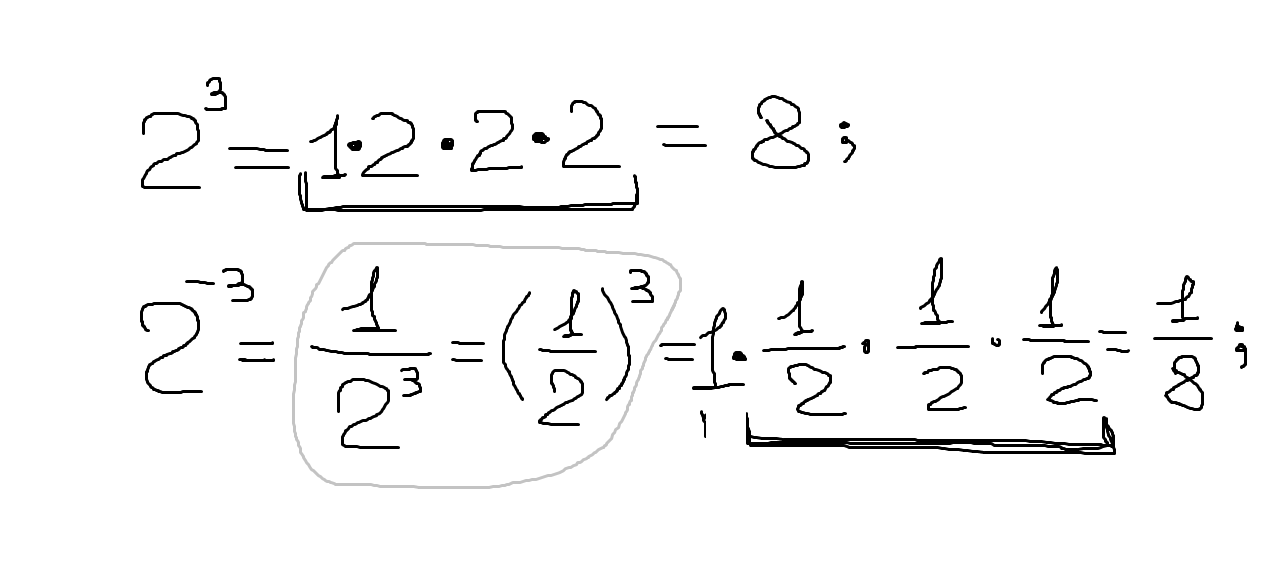 2³ = 1·2·2·2 = 8;
2⁻³ = 1/2³ = (1/2)³ = 1·1/2·1/2·1/2 = 1/8;